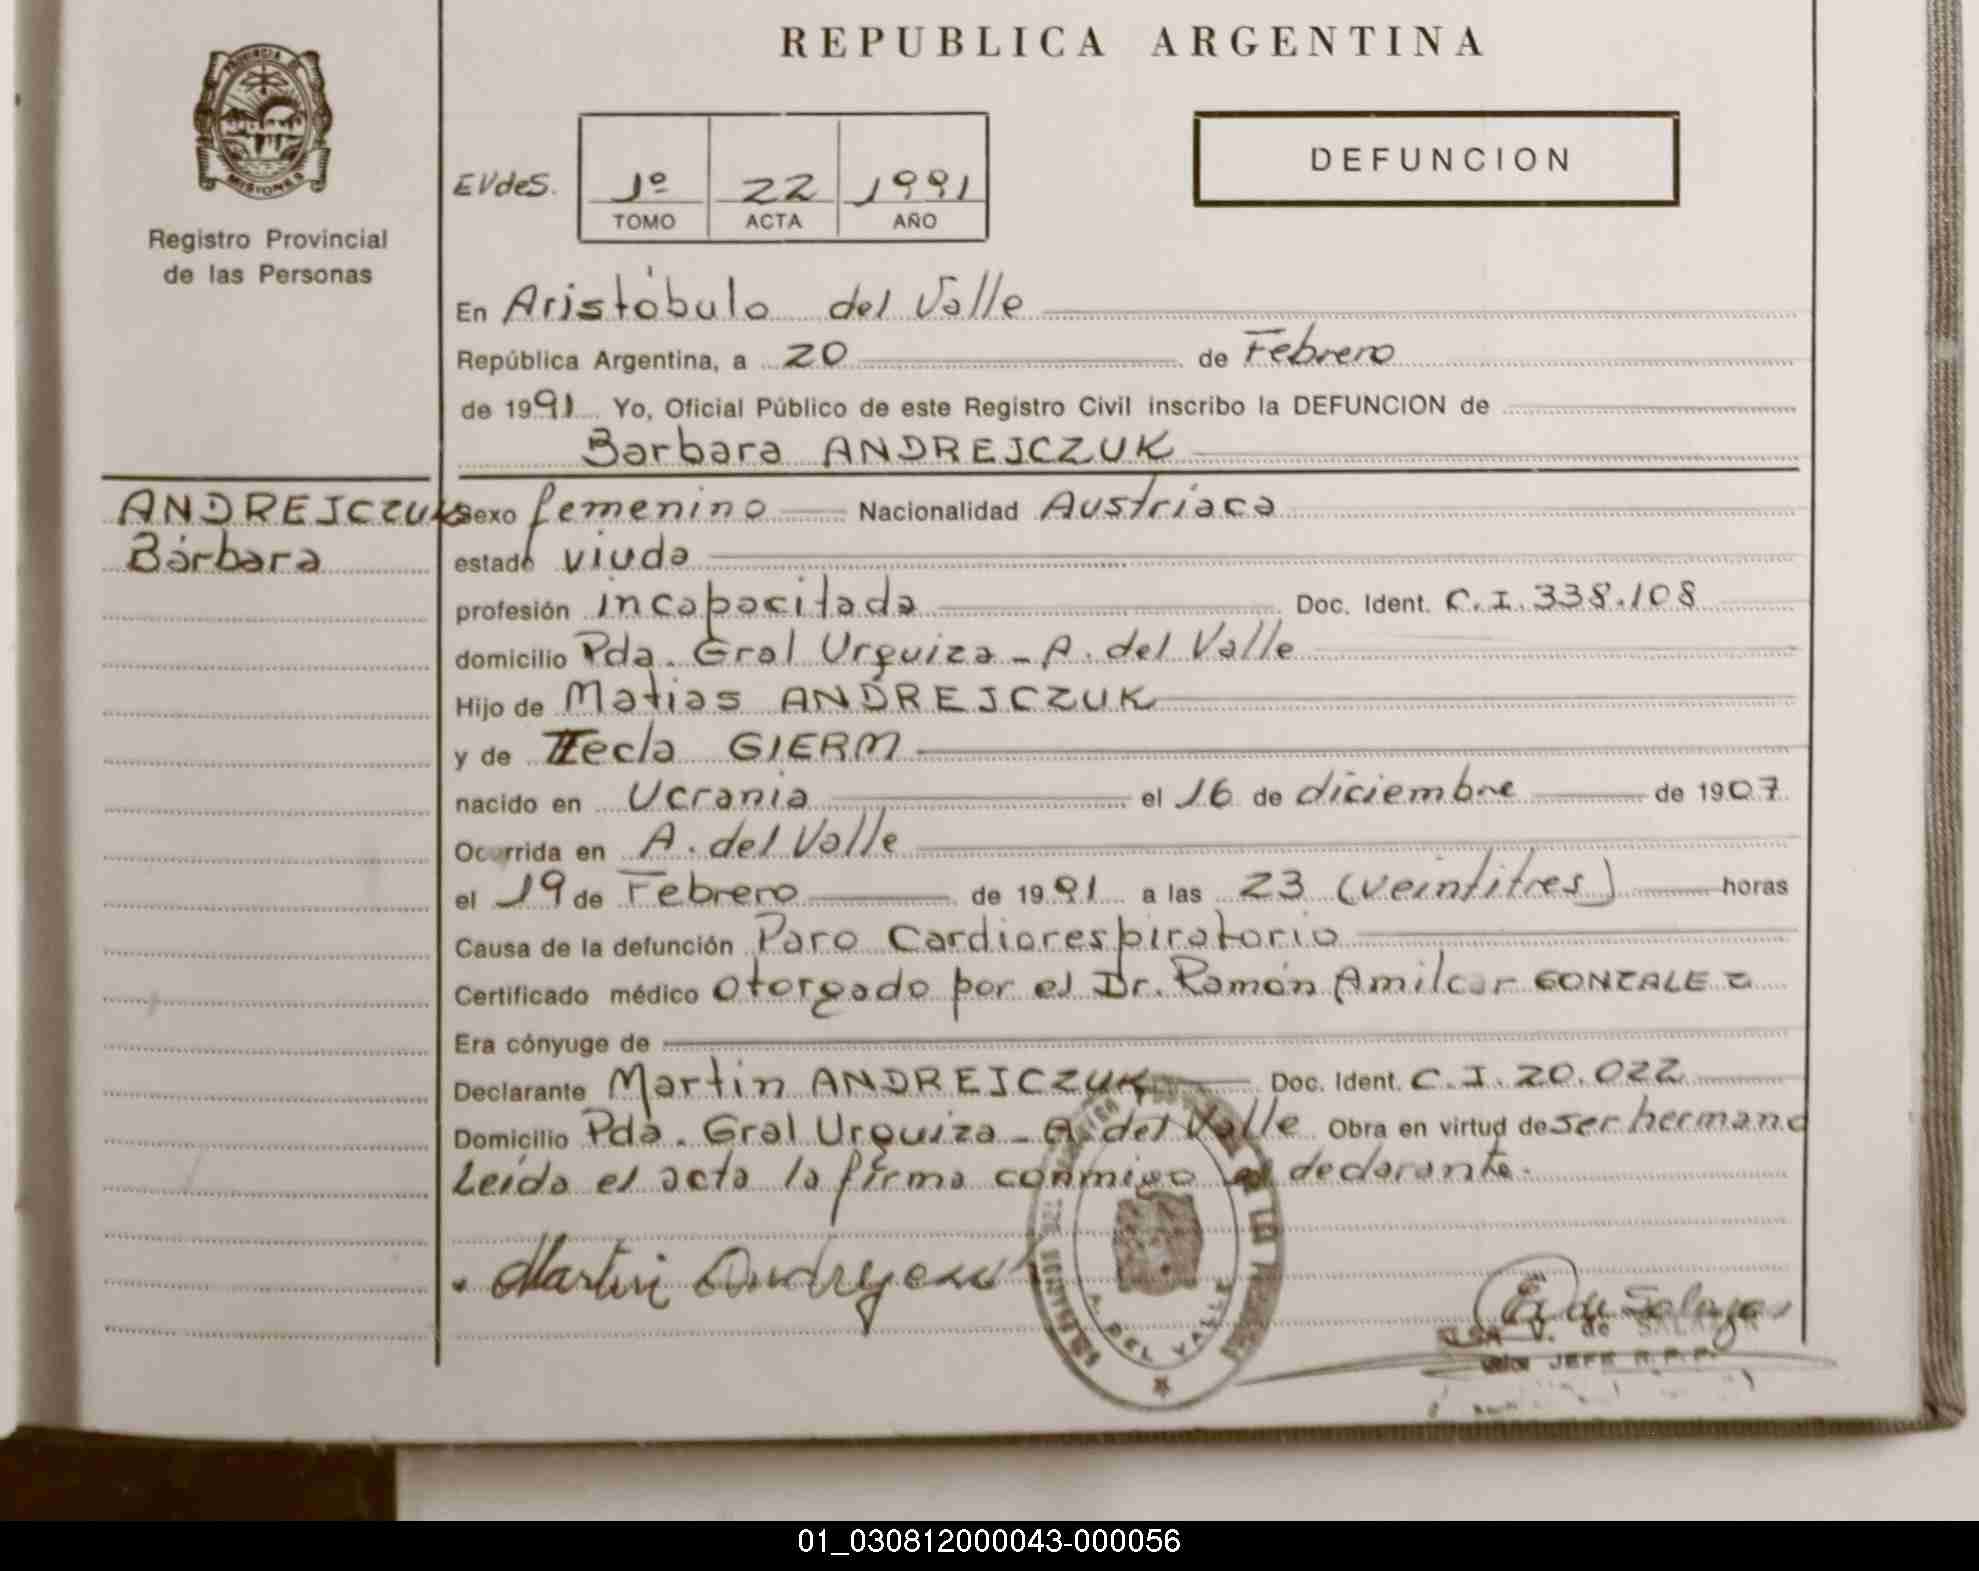 REPUBLICA ARGENTINA
PROVINCIA D
MISIONES
Registro Provincial
de las Personas
EVdeS.
1º 22 1991
TOMO ACTA AÑO
DEFUNCION
En Aristóbulo del Valle
República Argentina, a 20 de Febrero
de 1991 Yo, Oficial Público de este Registro Civil inscribo la DEFUNCION de
Barbara ANDREJCZUK
ANDREJCZUK
Bárbara
Sexo femenino Nacionalidad Austriaca
estado viuda
profesión incapacitada Doc. Ident. C.I. 338.108
domicilio Pda. Gral Urquiza - A. del Valle
Hijo de Matias ANDREJCZUK
y de Tecla GIERM
nacido en Ucrania el 16 de diciembre de 1907
Ocurrida en A. del Valle
el 19 de Febrero de 1991 a las 23 (veintitres) horas
Causa de la defunción Paro Cardiorespiratorio
Certificado médico otorgado por el Dr. Ramón Amilcar GONZALEZ
Era cónyuge de
Declarante Martin ANDREJCZUK Doc. Ident. C.I. 20.022
Domicilio Pda. Gral Urquiza - A. del Valle Obra en virtud de ser hermano
Leída el acta la firma conmigo el declarante.
Martin
A. DEL VALLE
E. V. de Salazar
ELSA V. de SALAZAR
JEFE R.P.P.
01_030812000043-000056